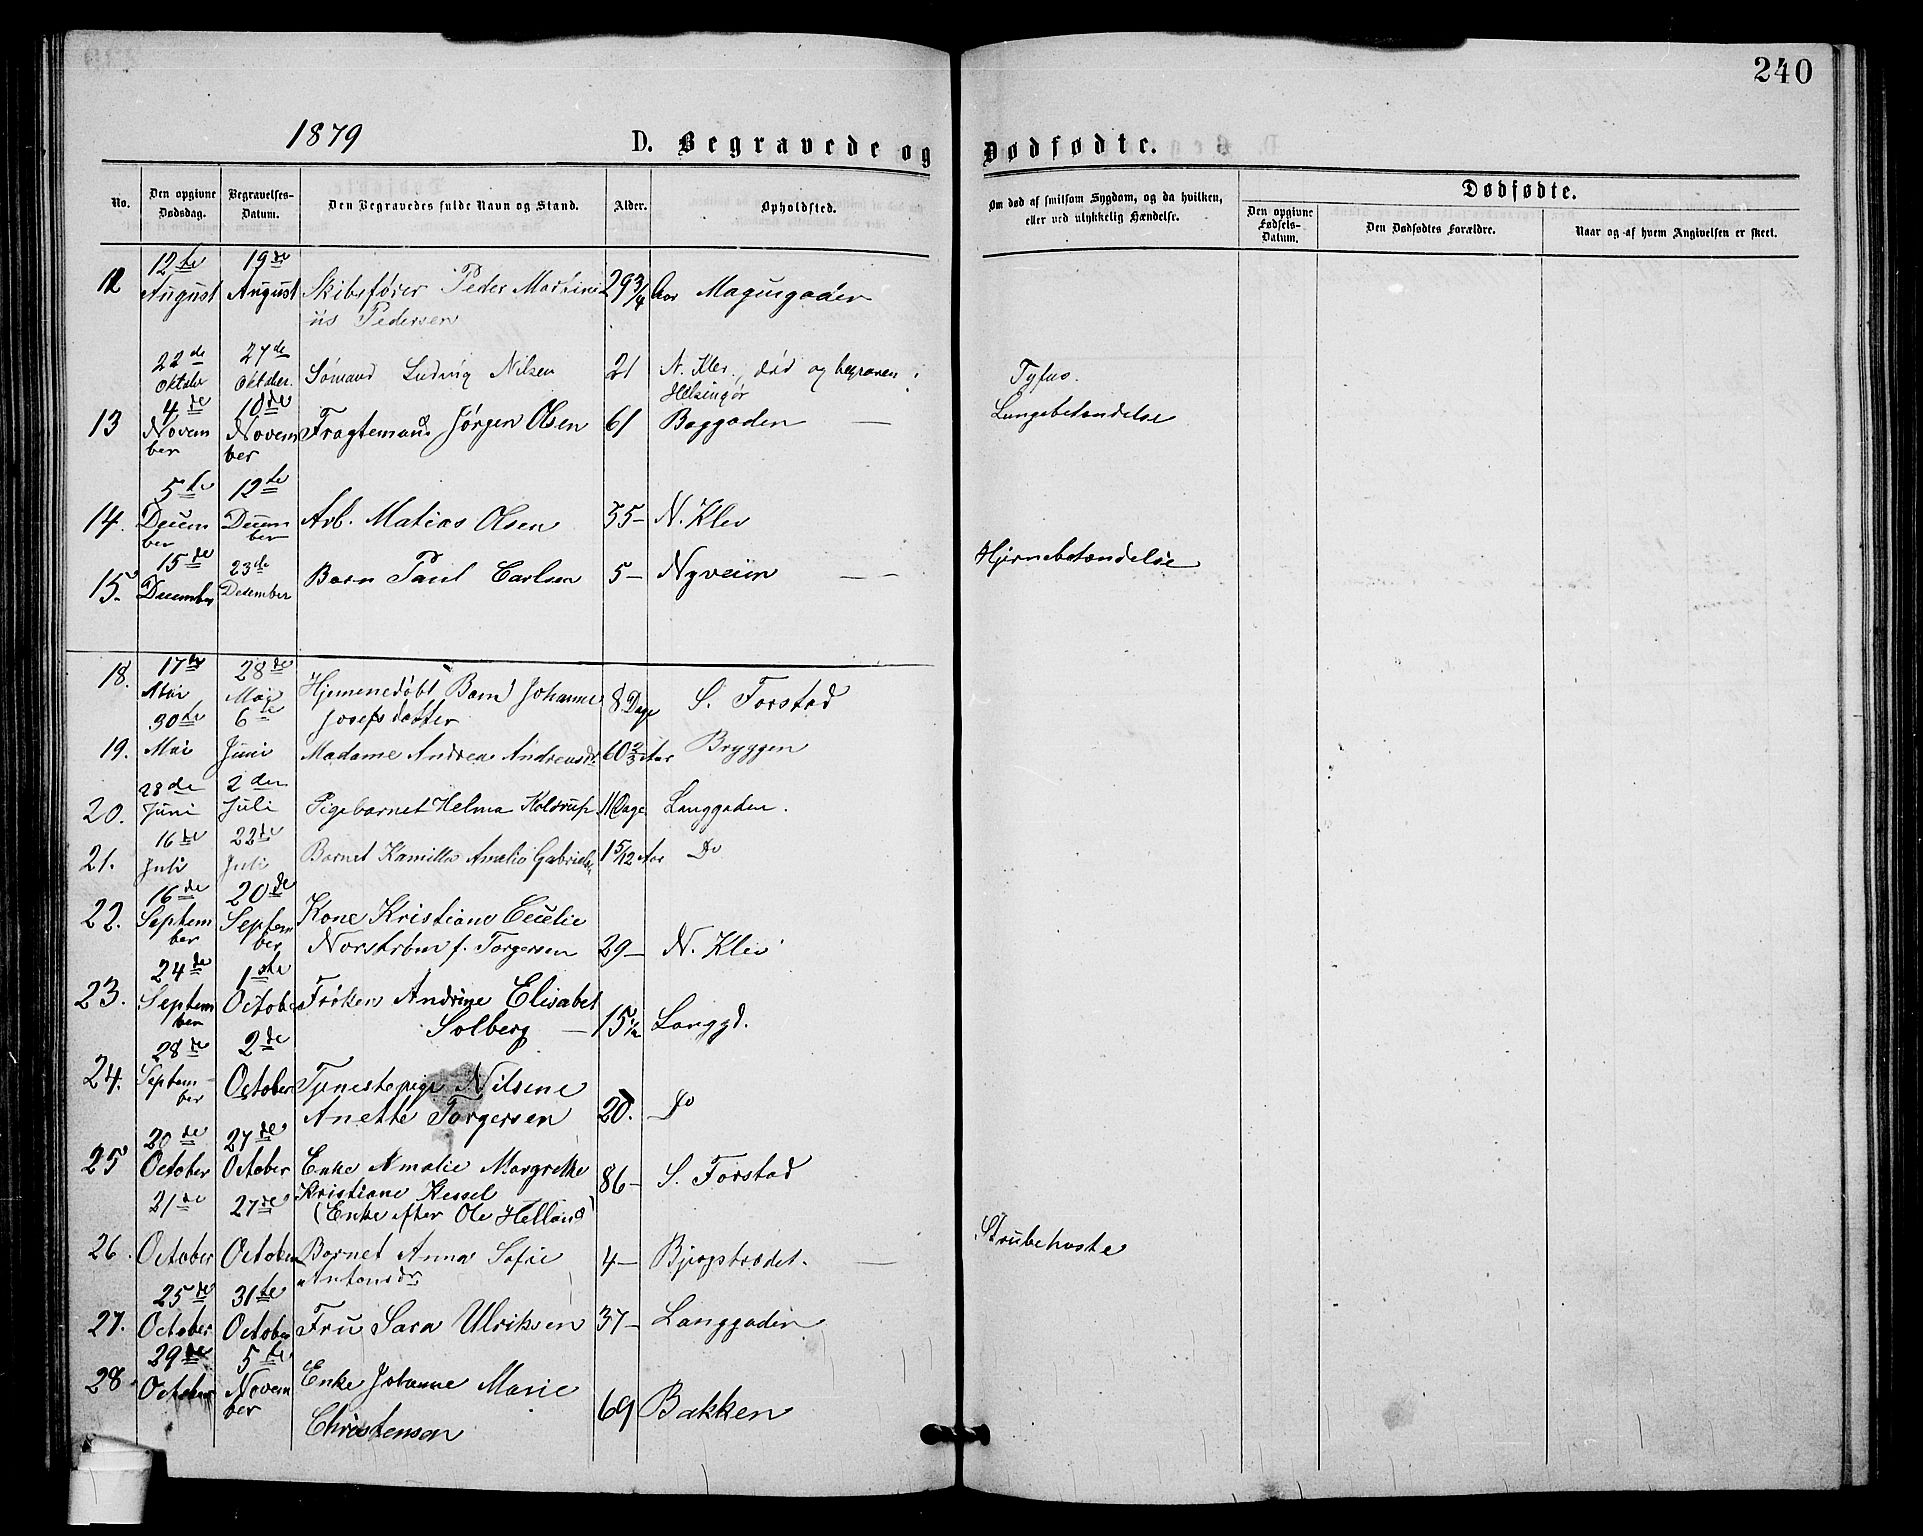 240
1879
D. Begravede og Dødfødte.
No.
Den opgivne Dødsdag.
Begravelses-Datum.
Den Begravedes fulde Navn og Stand.
Alder.
Opholdsted.
Om død af smitsom Sygdom, og da hvilken, eller ved ulykkelig Hændelse.
Dødfødte.
Den opgivne Fødsels-Datum.
Den Dødfødtes Forældre.
Naar og af hvem Angivelsen er skeet.
12 12te August 19de August Skibsfører Peder Martini
us Pedersen 29 3/4 Aar
22de Oktober 27de Oktober. Sømand Ludvig Nilsen 21 N. Klev., død og begraven i
Helsingør Tyfus.
13 4de Novem
ber 10de Novem
ber Fragtemand Jørgen Olsen 61 Baggaden — Lungebetændelse
14. 5te Decem
ber 12te Decem
ber Arb. Matias Olsen 35 — N. Klev
15. 15de December 23de Desember Barn Paul Carlsen 5 — Nyveien — — Hjernebetændelse
18. 17de Mai 28de Mai Hjemmedøbt Barn Johanne
Josefsdatter 8 Dage S. Forstad
19. 30te Mai 6te Juni Madame Andrea Andreasdr. 60 2/3 Aar Bryggen
20. 28de Juni 2den Juli Pigebarnet Helma Koldrup 11 Dage Langgaden.
21. 16de Juli 22de Juli Barnet Kamilla Amalie Gabrielsen 1 5/12 Aar Do
22. 16de Septem
ber 20de Septem
ber Kone Kristiane Cecelie
Norstrøm f. Torgersen 29 — N. Klev
23. 24de Septem
ber 1ste October Frøken Andrine Elisabet
Solberg — 15 1/2 Langgd.
24. 28de Septem-
ber 2de October Tjenestepige Nilsine
Anette Torgersen 20. Do
25 20de October 27de October Enke Amalie Margrethe
Kristiane Kessel
(Enke efter Ole Helland) 86 — S. Forstad
26. 21de October 27de October Barnet Anna Sofie
Antonsdr 4 — — Strubehoste
27. 25de October 31te October Fru Sara Ulriksen 37 — Langgaden
28. 29de October 5te Novem
ber Enke Johanne Marie
Christensen 69 Bakken